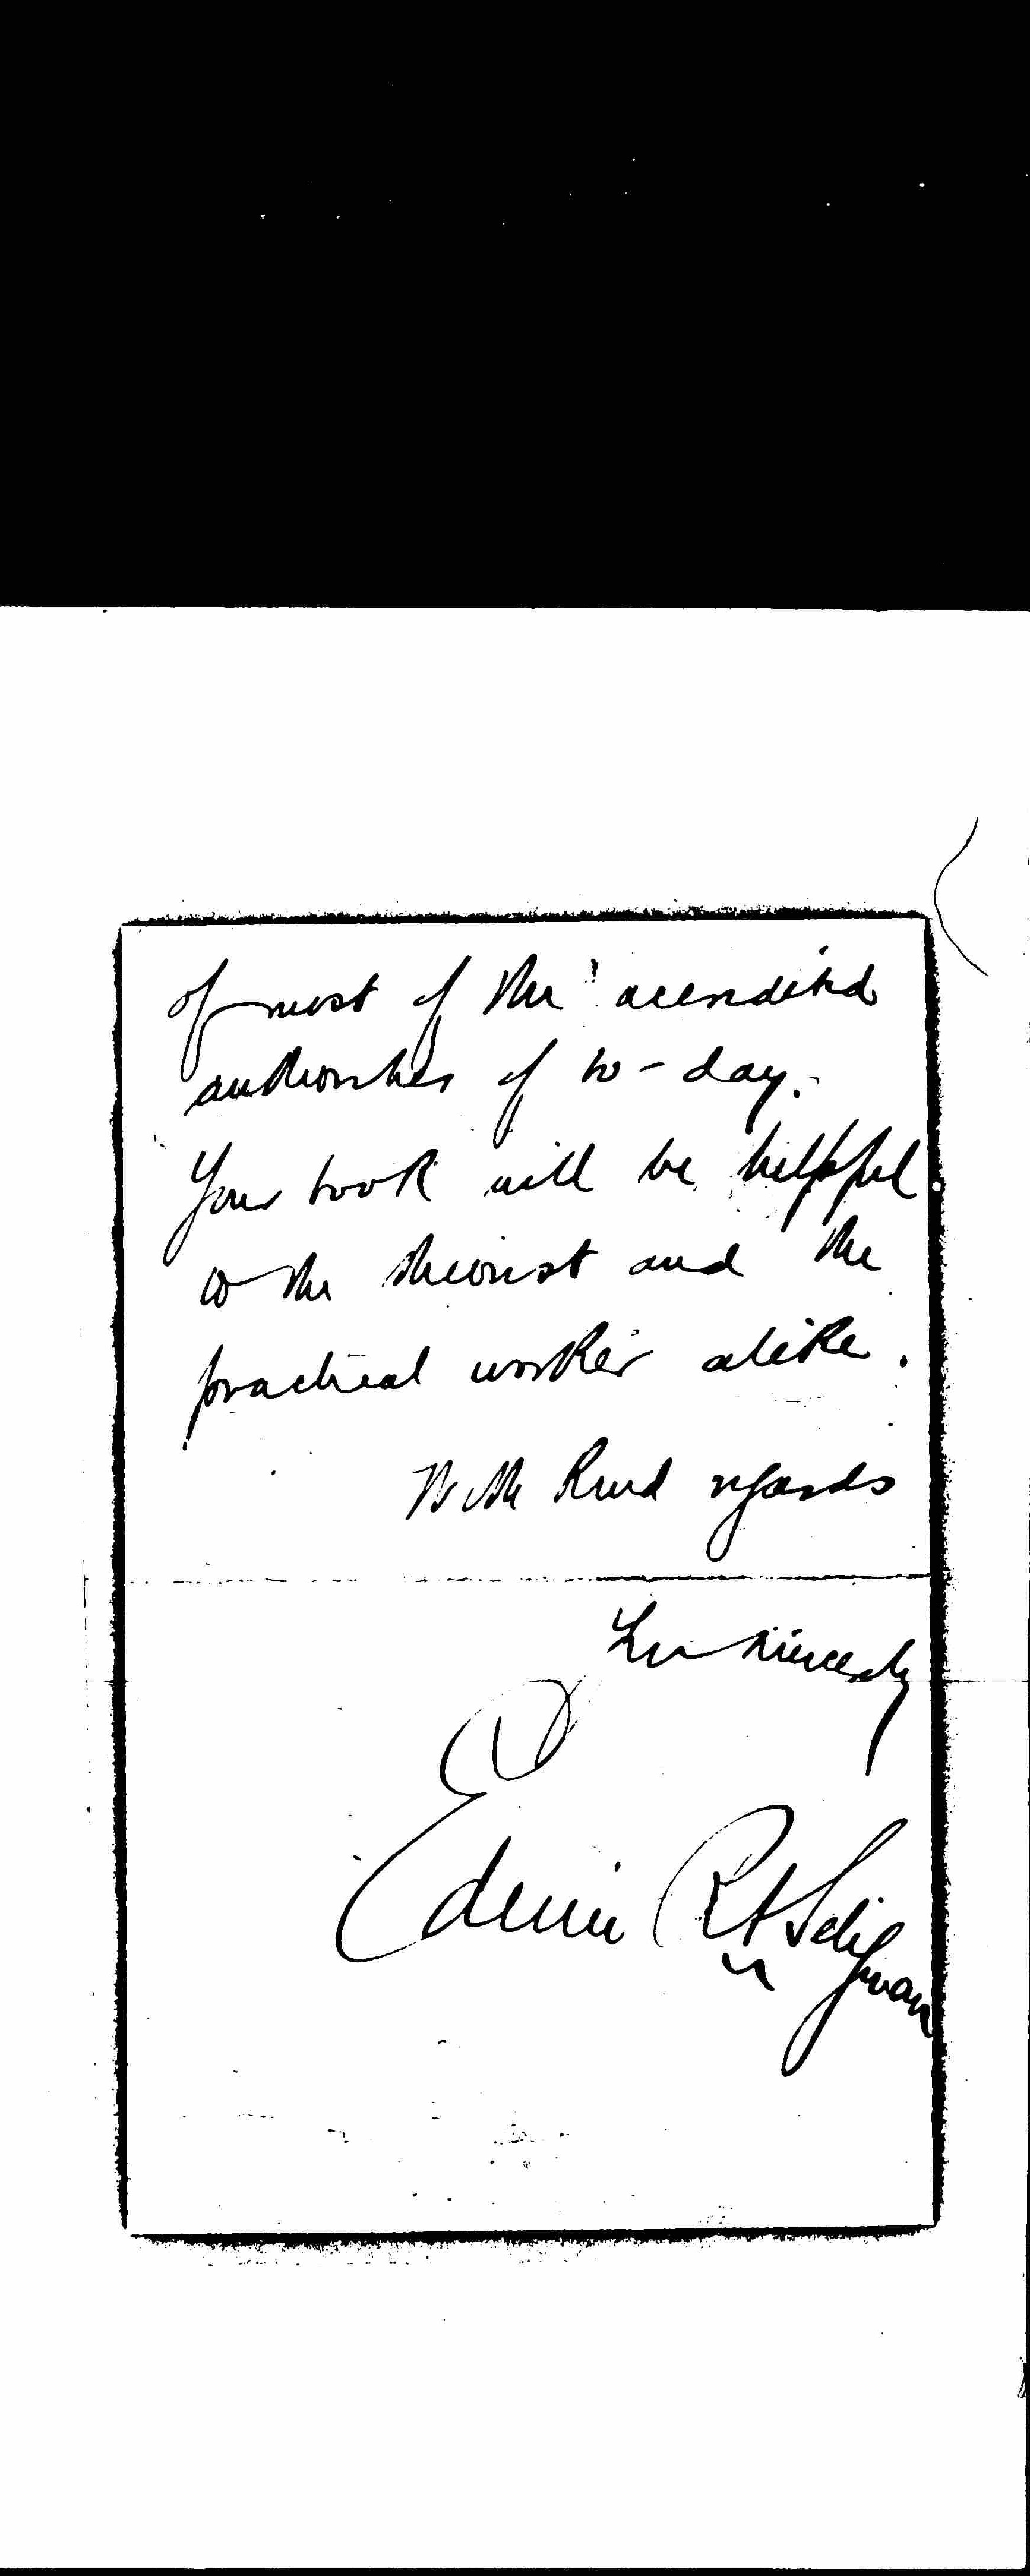 of most of the accredited
authorities of to-day.
Your book will be helpful
to the theorist and the
practical worker alike.
With kind regards
Yrs sincerely
Edwin R A Seligman